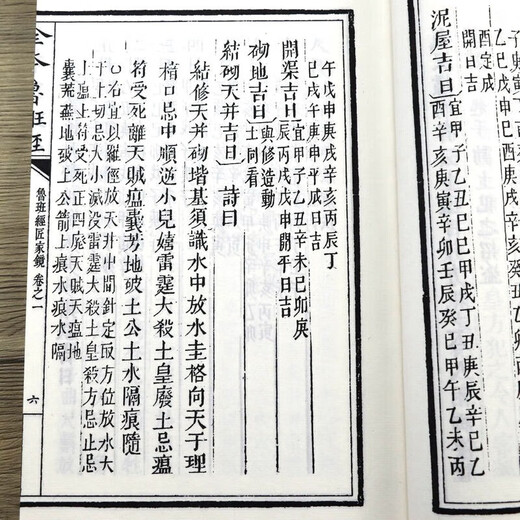 子庚寅
乙巳己
酉定成
開日吉
泥屋吉日宜甲子乙丑己巳甲戌丁丑庚辰辛巳乙
酉辛亥庚寅辛卯壬辰癸巳甲午乙未丙
午戊申庚戌辛亥丙辰丁
巳戊午庚申平成日吉
開渠吉日宜甲子乙丑辛未己卯庚
辰丙戌戊申開平日吉
砌地吉日與修造動
土同看
結砌天井吉日 詩曰
結修天井砌堦基須識水中放水圭格向天干埋
棓口忌中順逆小兒嬉雷霆大殺土皇廢土忌瘟
符受死離天賊瘟囊芳地破土公土水隔痕隨
右宜以羅經放天井中間針定取方位放水大
上切忌大小滅沒雷霆大殺土皇殺方忌止忌
土瘟土符受死正四廢天賊天瘟地
囊荒蕪地破土公箭土痕水痕水隔
魯班經
魯班經匠家鏡 卷之一
六